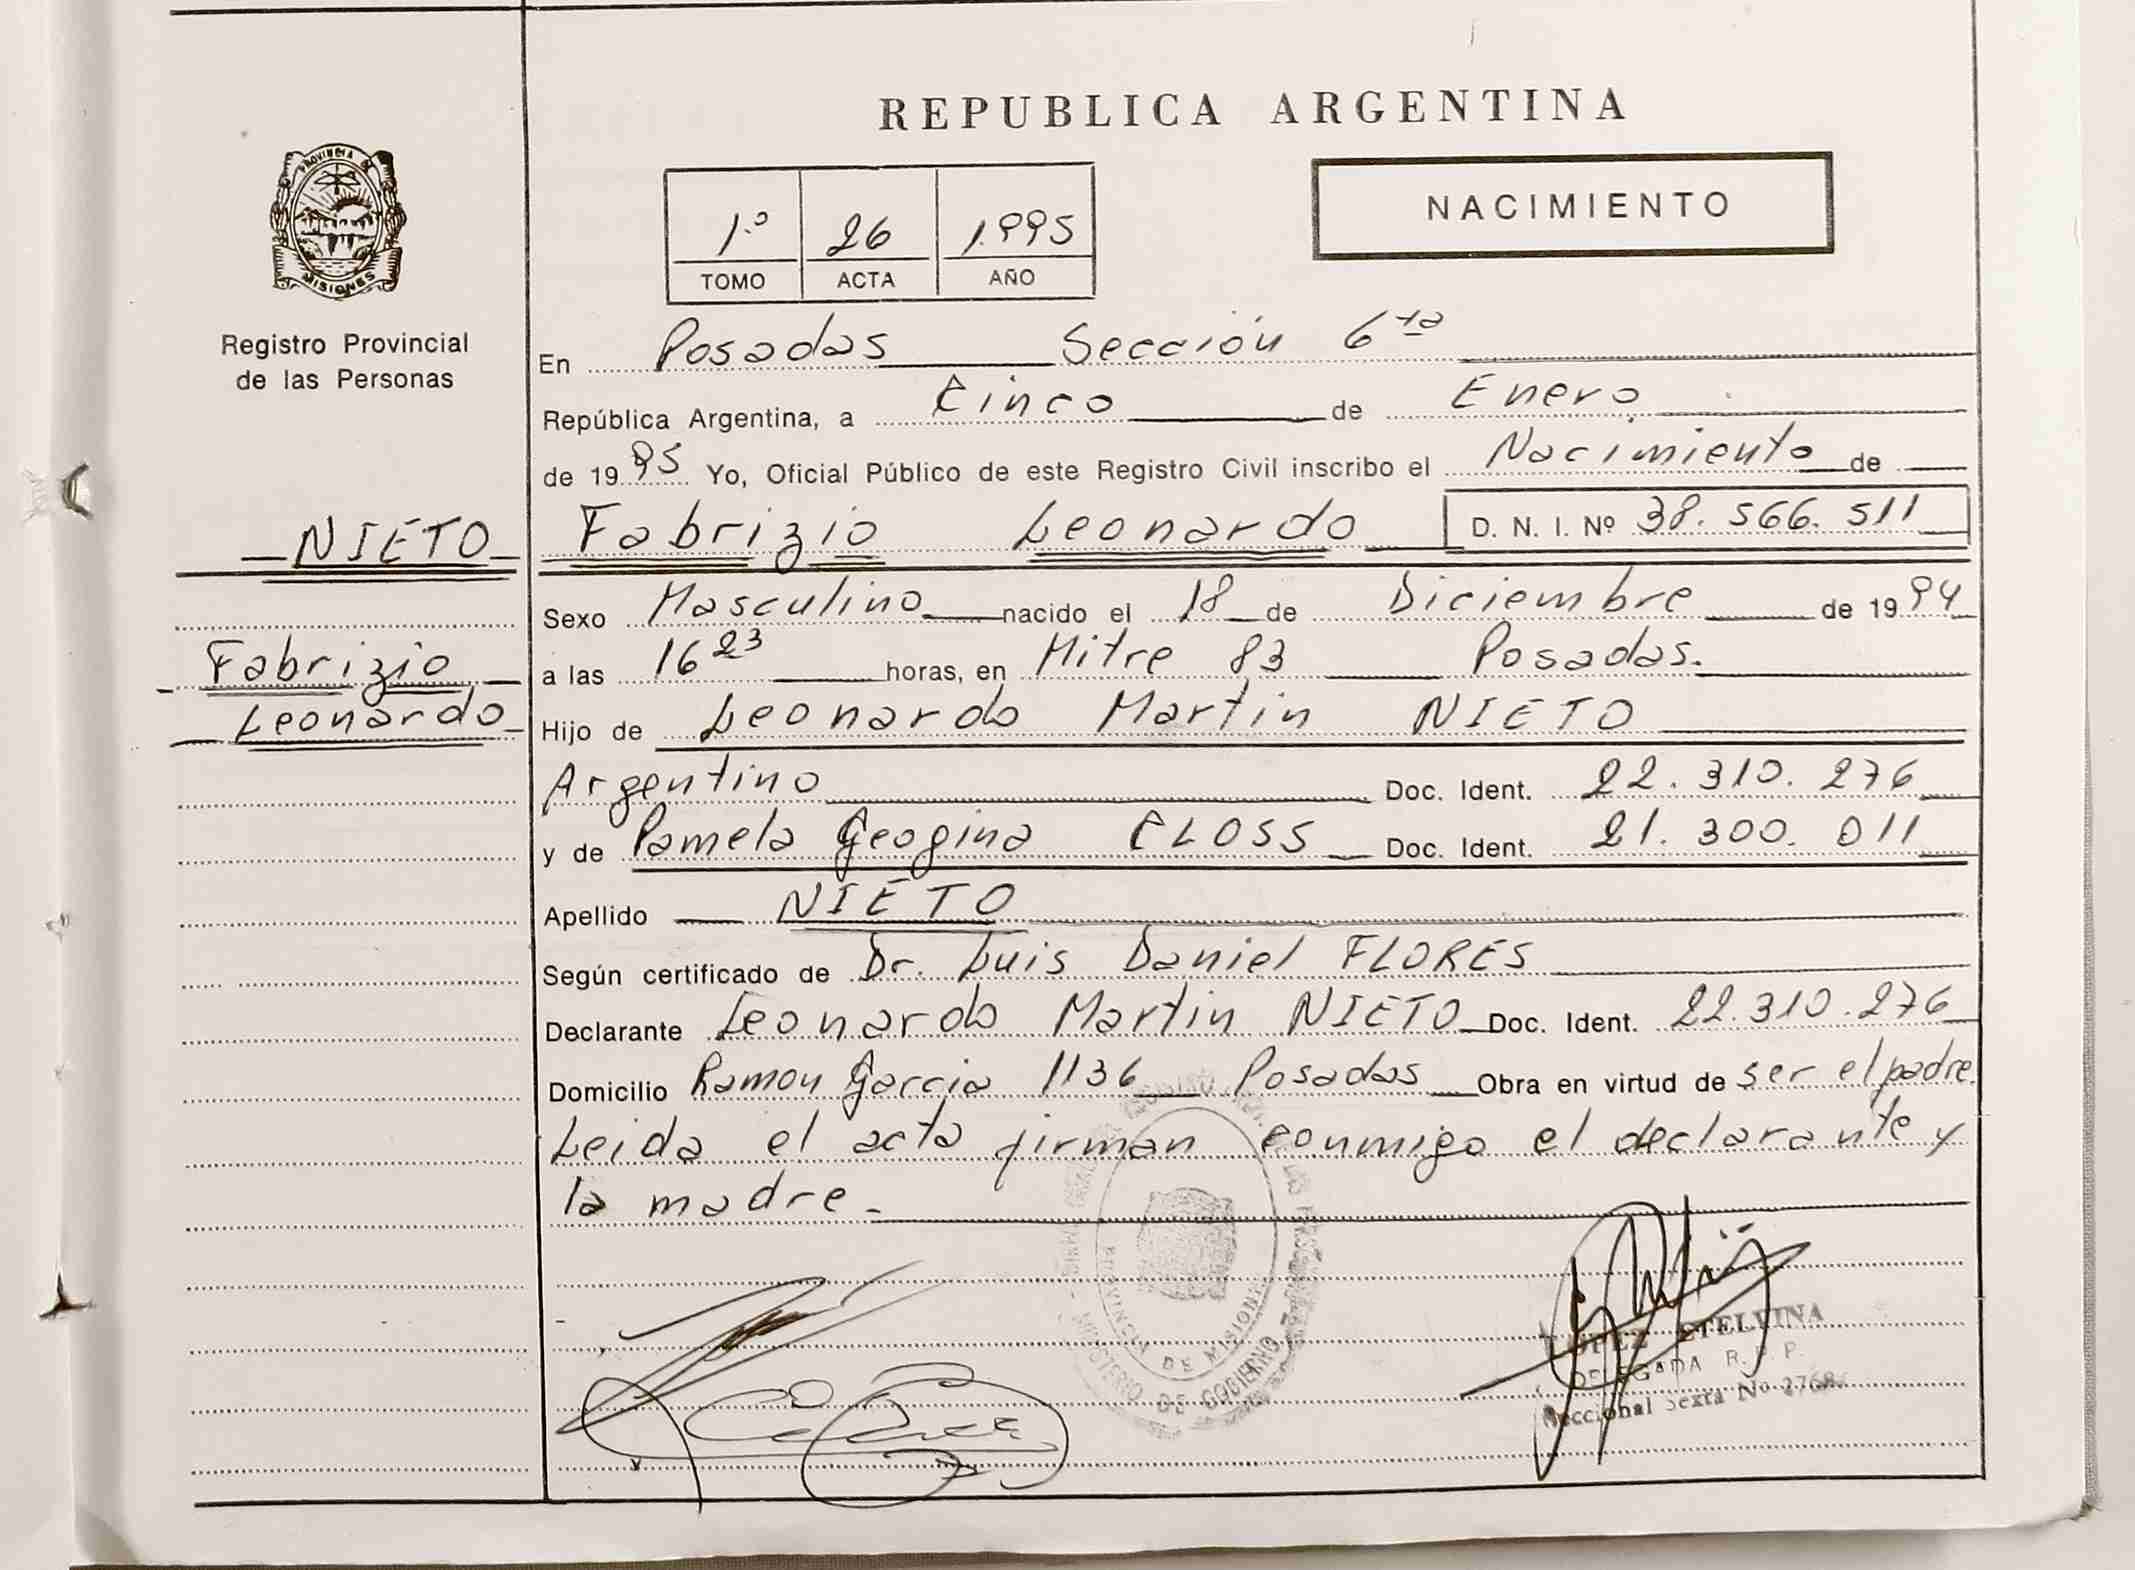 REPUBLICA ARGENTINA
PROVINCIA DE
MISIONES
Registro Provincial
de las Personas
1.º 26 1.995
TOMO ACTA AÑO
NACIMIENTO
En Posadas Sección 6ta
República Argentina, a Cinco de Enero
de 1995 Yo, Oficial Público de este Registro Civil inscribo el Nacimiento de
NIETO Fabrizio Leonardo D. N. I. Nº 38.566.511
Sexo Masculino nacido el 18 de Diciembre de 1994
Fabrizio
a las 16 23 horas, en Mitre 83 Posadas.
Leonardo
Hijo de Leonardo Martin NIETO
Argentino Doc. Ident. 22.310.276
y de Pamela Geogina CLOSS Doc. Ident. 21.300.011
Apellido NIETO
Según certificado de Dr. Luis Daniel FLORES
Declarante Leonardo Martin NIETO Doc. Ident. 22.310.276
Domicilio Ramon Garcia 1136 Posadas Obra en virtud de ser el padre.
Leida el acta firman conmigo el declarante y
la madre.-
PROVINCIA DE MISIONES
MINISTERIO DE GOBIERNO
LOPEZ STELVINA
DELEGADA R. P. P.
Seccional Sexta Nº 2768